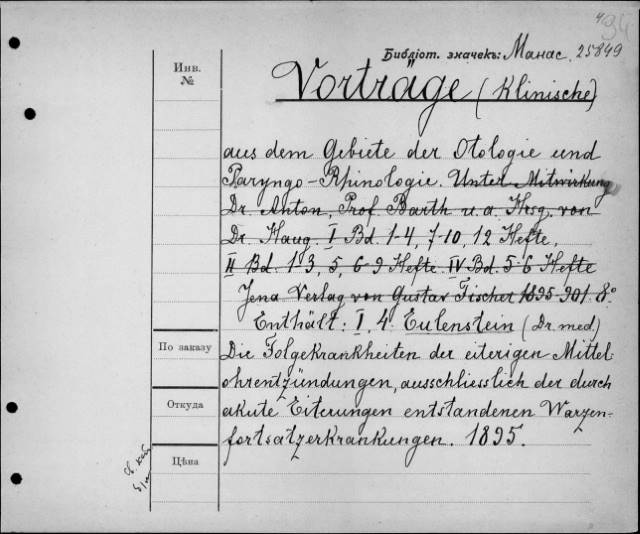 94
Библіот. значекъ: Манас. 25849
Инв.
№
Vorträge (Klinische)
aus dem Gebiete der Otologie und
Paryngo-Rhinologie. Unter Mitwirkung
Dr. Anton, Prof. Barth u. a. Hrsg. von
Dr. Haug. I Bd. 1-4, 7-10, 12 Hefte,
II Bd. 1-3, 5, 6-9 Hefte. IV Bd. 5-6 Hefte
Jena Verlag von Gustav Fischer 1895-901. 8°
Enthält: I, 4. Eulenstein (Dr. med.)
По заказу
Die Folgekrankheiten der eiterigen Mittel-
ohrentzündungen, ausschliesslich der durch
Откуда
akute Eiterungen entstandenen Warzen-
fortsatzerkrankungen. 1895.
Цѣна